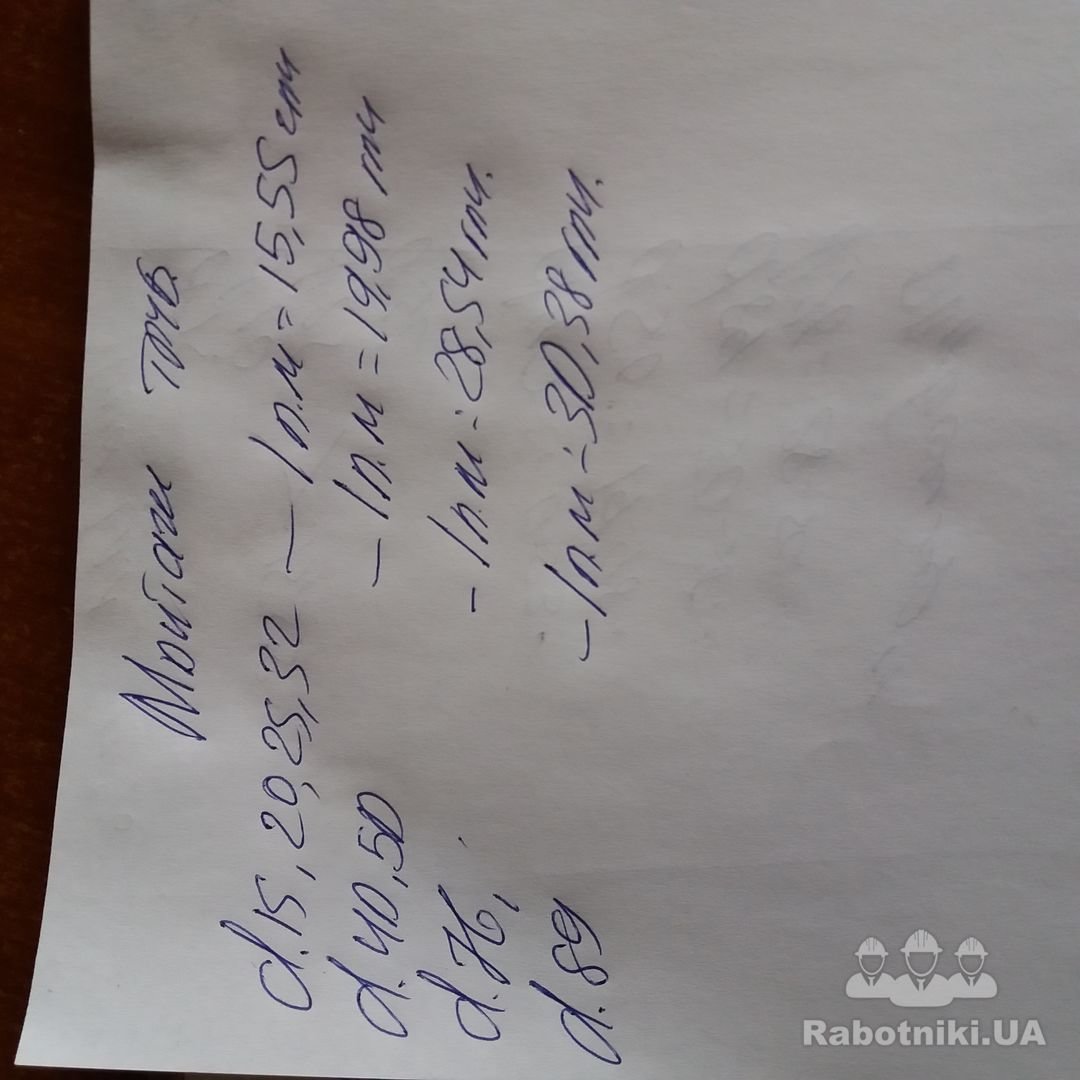 Монтаж труб.
d.15, 20, 25, 32 — 1 п.м = 15,55
d.40, 50 — 1 п.м = 19,98
d.76, — 1 п.м - 28,54
d.89 — 1 п.м - 30,38
Rabotniki.UA